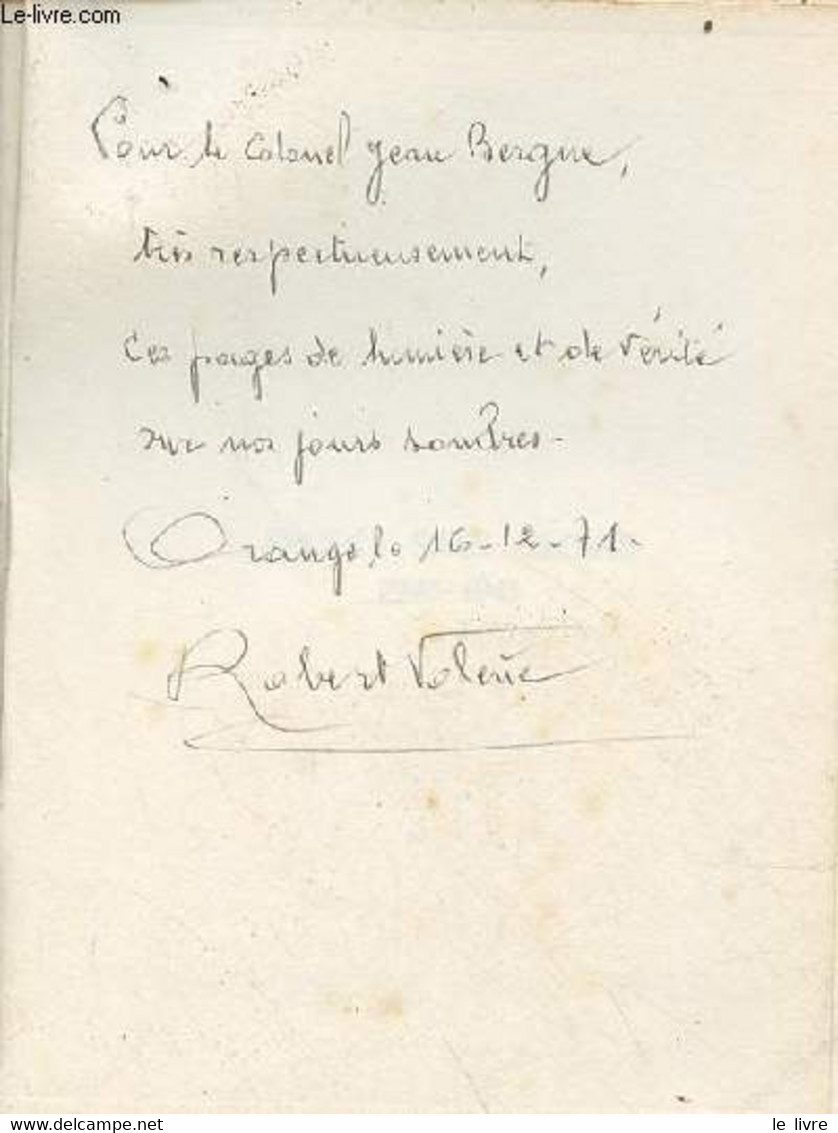 Le-livre.com
Pour le Colonel Jean Bergue,
très respectueusement,
Ces pages de lumière et de vérité
sur nos jours sombres -
Orange le 16-12-71.
Robert
le livre